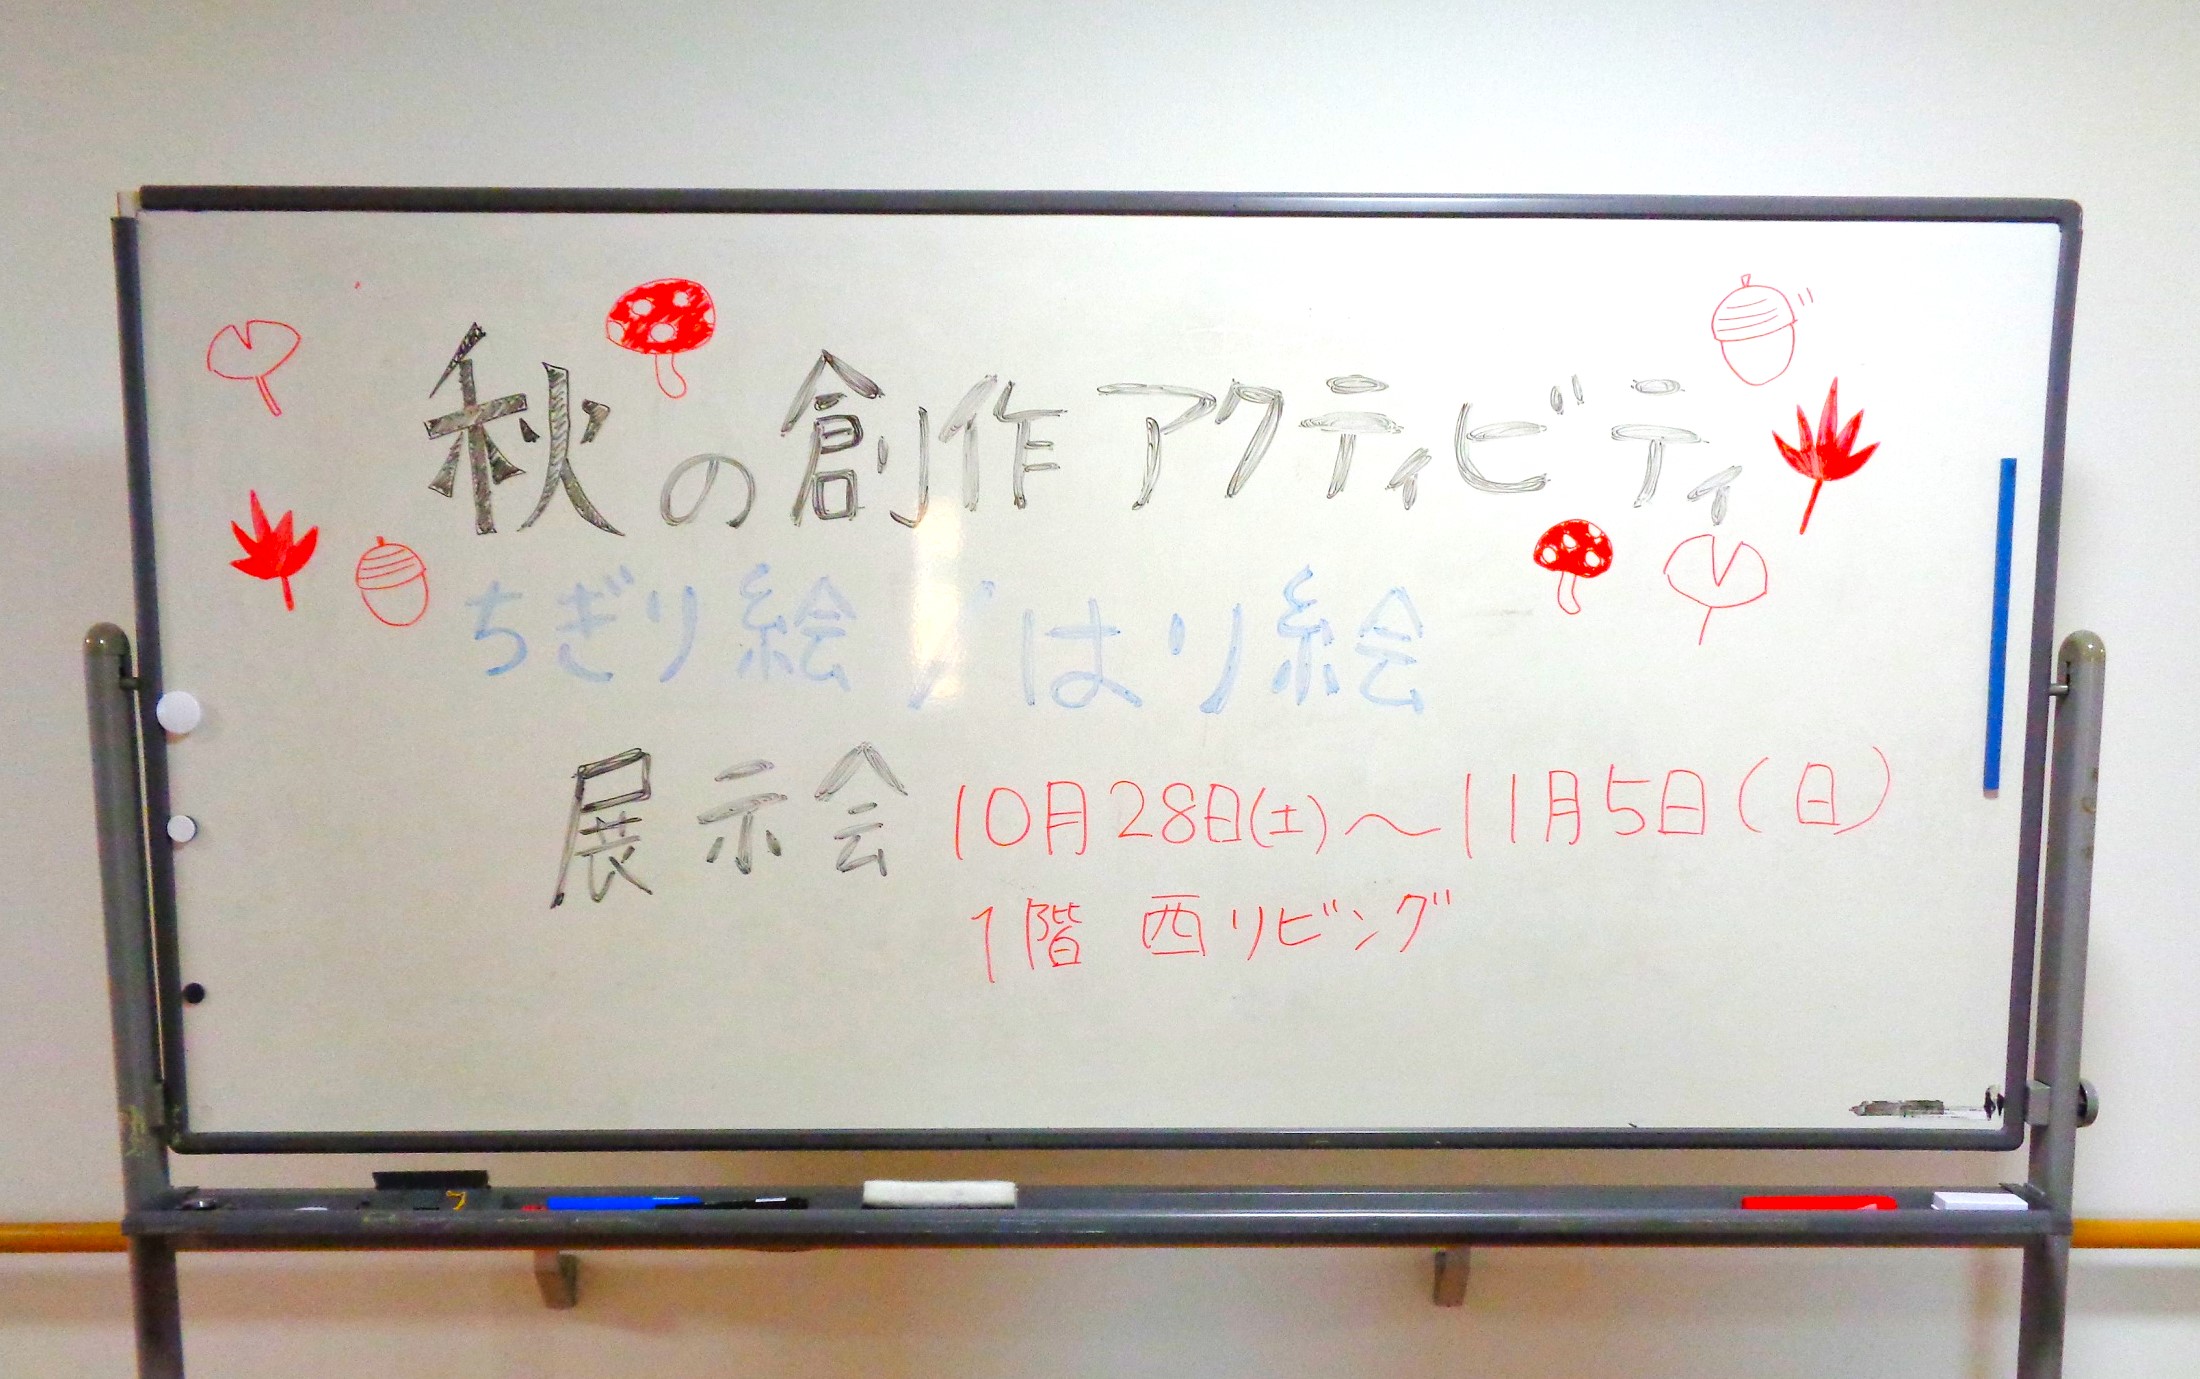 秋の創作アクティビティ
ちぎり絵/はり絵
展示会 10月28日(土)~11月5日(日)
1階 西リビング